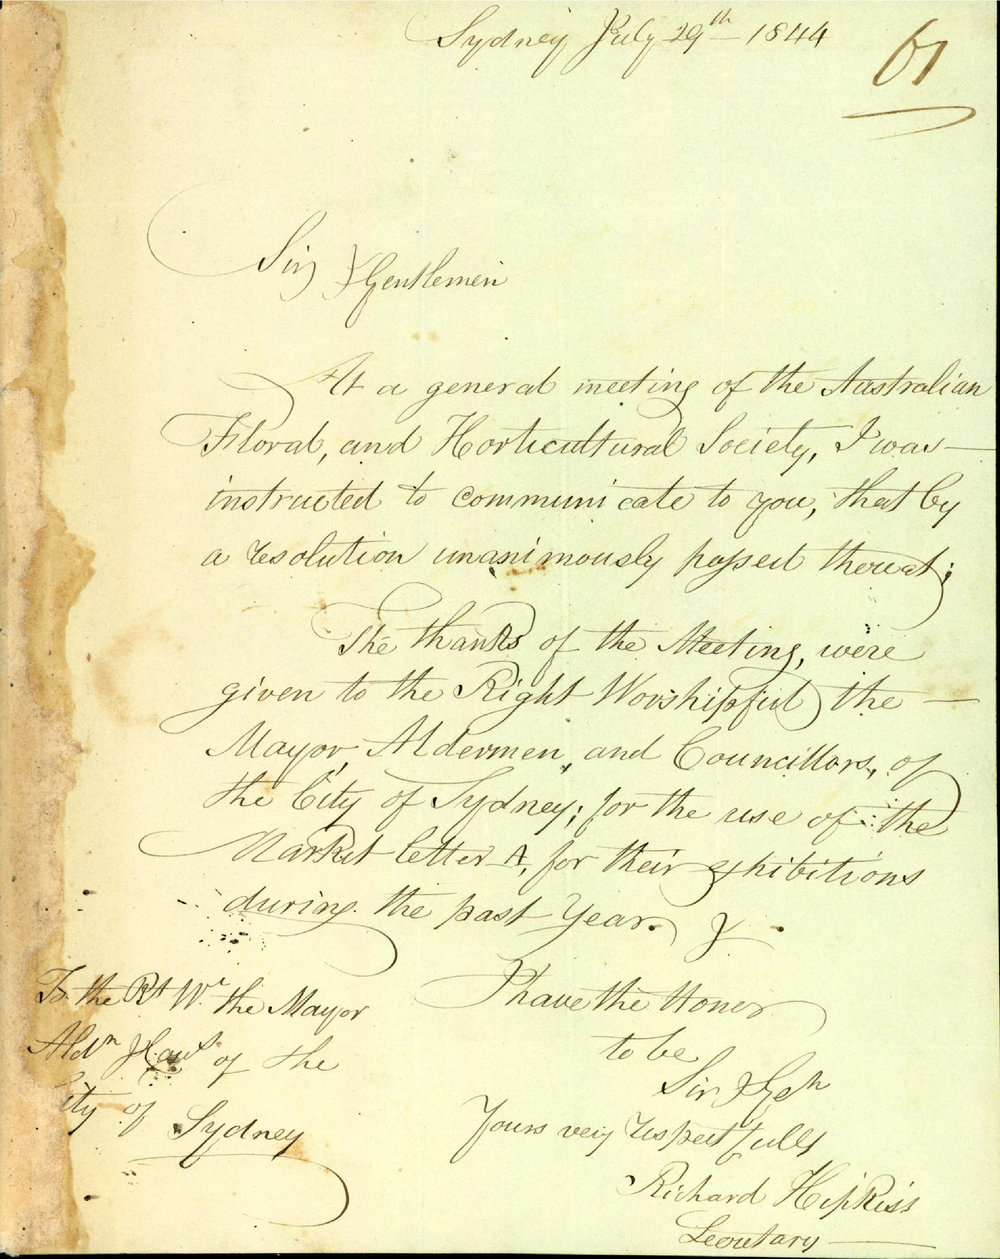 Sydney July 29th 1844
61
Sir & Gentlemen
At a general meeting of the Australian
Floral, and Horticultural Society, I was
instructed to communicate to you, that by
a resolution unanimously passed thereat;
The thanks of the Meeting, were
given to the Right Worshipful the
Mayor, Aldermen, and Councillors, of
the City of Sydney; for the use of the
Market letter A, for their exhibitions
during the past Year. &
I have the Honor
to be
Sir & Gen
Yours very respectfully
Richard Hipkiss
Secretary
To the Rt Wl the Mayor
Aldn & of the
ity of Sydney